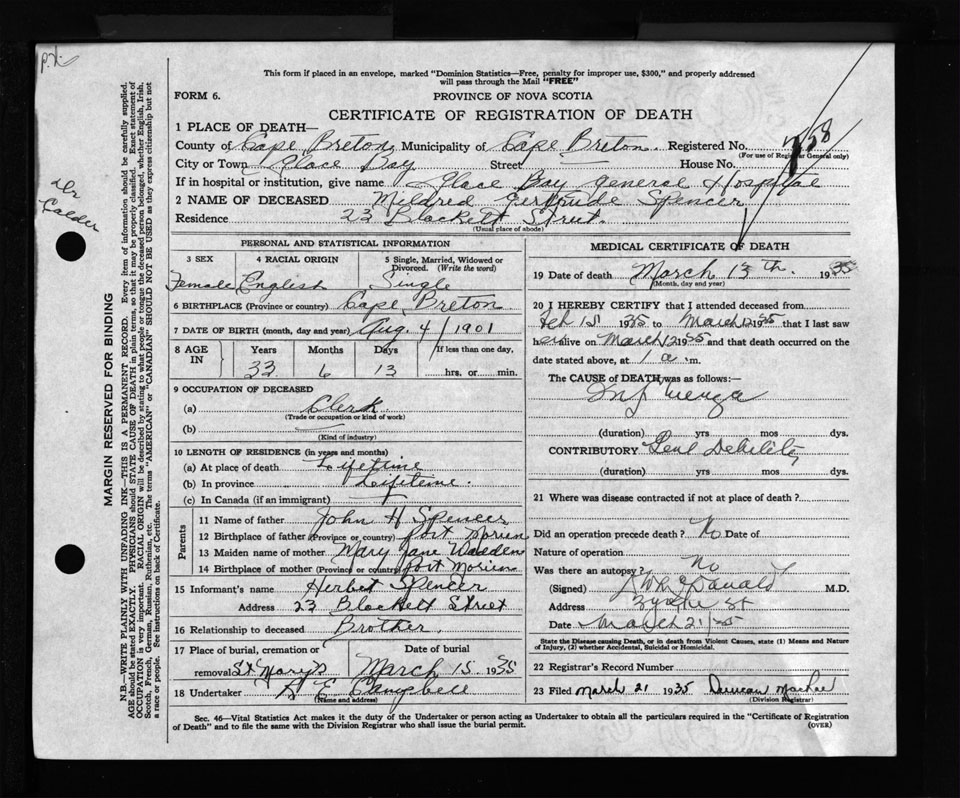 P.N.
This form if placed in an envelope, marked "Dominion Statistics—Free, penalty for improper use, $300," and properly addressed
will pass through the Mail "FREE"
FORM 6.
PROVINCE OF NOVA SCOTIA
CERTIFICATE OF REGISTRATION OF DEATH
1 PLACE OF DEATH—
County of Cape Breton, Municipality of Cape Breton. Registered No. 758
(For use of Registrar General only)
City or Town Glace Bay Street — House No.
If in hospital or institution, give name Glace Bay General Hospital
2 NAME OF DECEASED Mildred Gertrude Spencer
Residence 23 Blackett Street.
(Usual place of abode)
Dr Calder
MARGIN RESERVED FOR BINDING
N.B.—WRITE PLAINLY WITH UNFADING INK—THIS IS A PERMANENT RECORD. Every item of information should be carefully supplied.
AGE should be stated EXACTLY. PHYSICIANS should STATE CAUSE OF DEATH in plain terms, so that it may be properly classified. Exact statement of
OCCUPATION is very important. RACIAL ORIGIN will be described by stating to what people or tongue the deceased person belonged, whether English, Irish,
Scotch, French, German, Russian, Ruthenian, etc. The terms "AMERICAN" or "CANADIAN" SHOULD NOT BE USED as they express citizenship but not
a race or people. See instructions on back of Certificate.
PERSONAL AND STATISTICAL INFORMATION
3 SEX
4 RACIAL ORIGIN
5 Single, Married, Widowed or
Divorced. (Write the word)
Female English Single
6 BIRTHPLACE (Province or country) Cape Breton
7 DATE OF BIRTH (month, day and year) Aug. 4/1901
8 AGE IN
Years Months Days If less than one day,
33 6 13 hrs. or min.
9 OCCUPATION OF DECEASED
(a) Clerk
(Trade or occupation or kind of work)
(b) —
(Kind of industry)
10 LENGTH OF RESIDENCE (in years and months)
(a) At place of death Lifetime
(b) In province Lifetime.
(c) In Canada (if an immigrant)
Parents
11 Name of father John H Spencer
12 Birthplace of father (Province or country) Port Morien
13 Maiden name of mother Mary Jane Wadden
14 Birthplace of mother (Province or country) Port Morien
15 Informant's name Herbert Spencer
Address 23 Blackett Street
16 Relationship to deceased Brother.
17 Place of burial, cremation or Date of burial
removal St Mary's March 15 1935
18 Undertaker A E Campbell
(Name and address)
MEDICAL CERTIFICATE OF DEATH
19 Date of death March 13th. 1935
(Month, day and year)
20 I HEREBY CERTIFY that I attended deceased from
Feb 15 1935 to March 12 1935 that I last saw
her alive on March 12 1935 and that death occurred on the
date stated above, at 1 a. m.
The CAUSE of DEATH was as follows:—
Influenza
(duration) yrs mos dys.
CONTRIBUTORY Genl Debility
(duration) yrs mos dys.
21 Where was disease contracted if not at place of death?
Did an operation precede death? No Date of
Nature of operation
Was there an autopsy? No
(Signed) McDonald M.D.
Address St
Date March 21/35
State the Disease causing Death, or in death from Violent Causes, state (1) Means and Nature
of Injury, (2) whether Accidental, Suicidal or Homicidal.
22 Registrar's Record Number
23 Filed March 21 1935 Duncan MacRae
(Division Registrar)
Sec. 46—Vital Statistics Act makes it the duty of the Undertaker or person acting as Undertaker to obtain all the particulars required in the "Certificate of Registration
of Death" and to file the same with the Division Registrar who shall issue the burial permit.
(OVER)